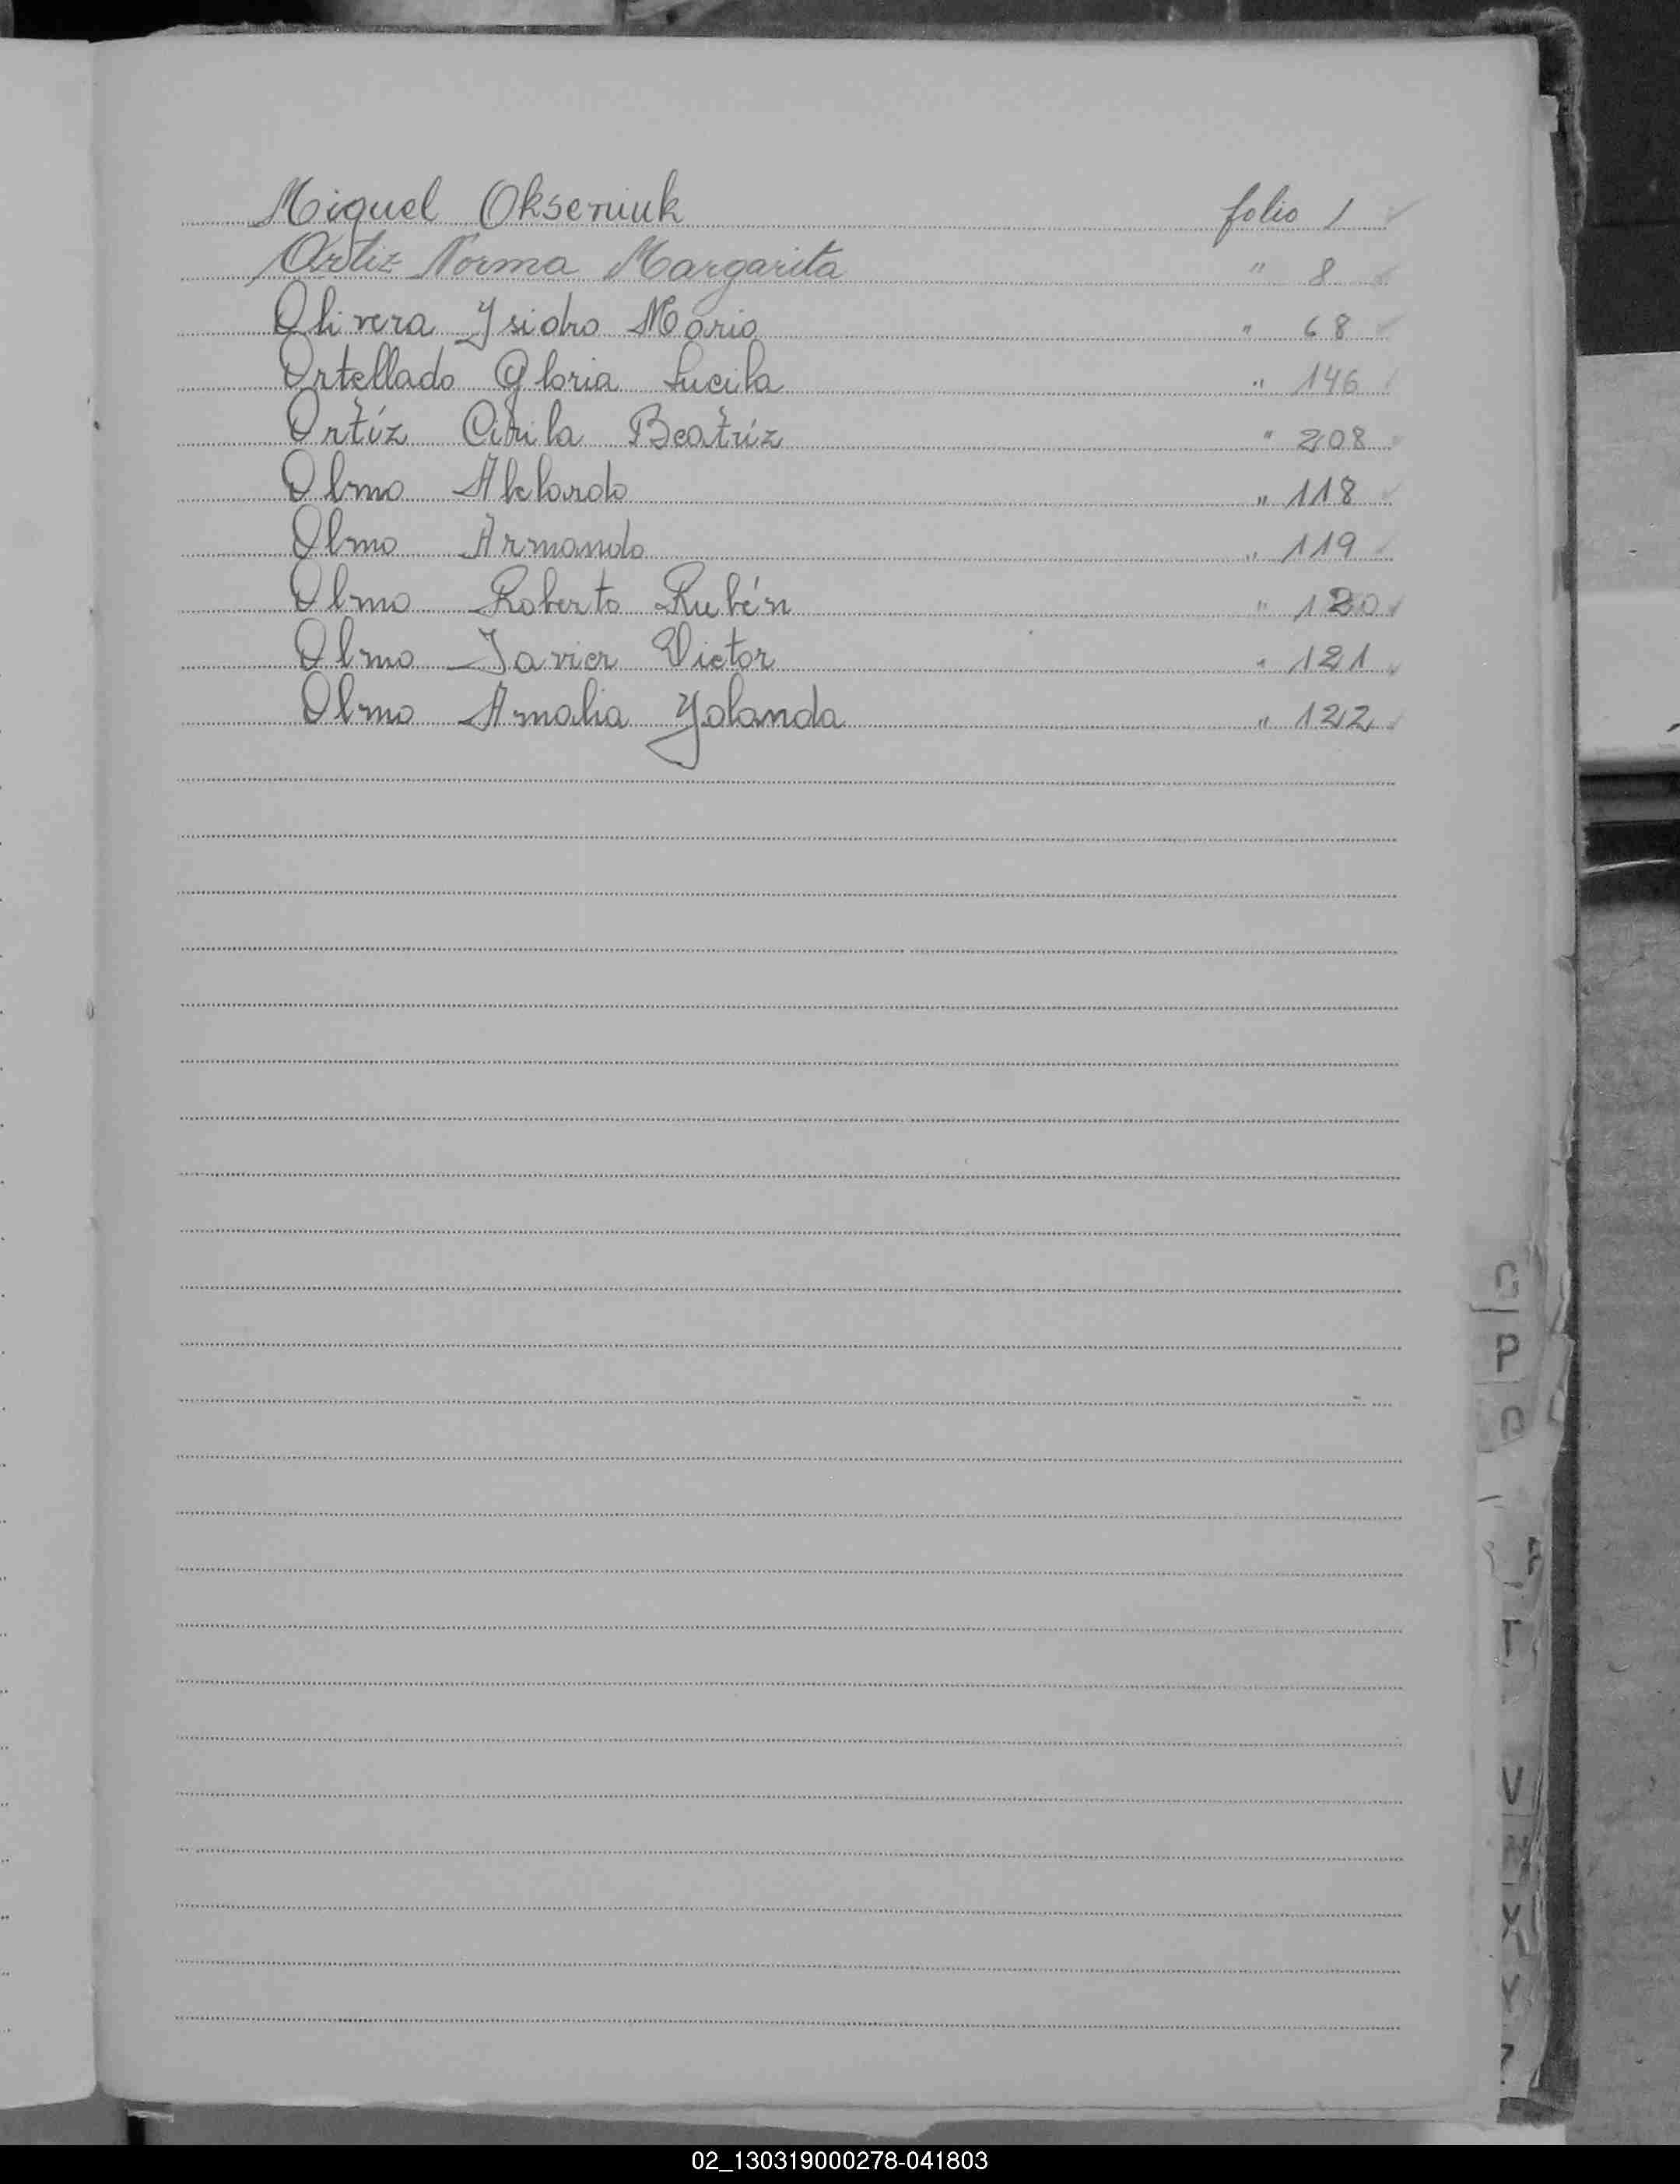 Miguel Okseniuk folio 1
Ortiz Norma Margarita " 8
Olivera Ysidro Mario " 68
Ortellado Gloria Lucila " 146
Ortíz Cirila Beatríz " 208
Olmo Abelardo " 118
Olmo Armando " 119
Olmo Roberto Rubén " 120
Olmo Javier Victor " 121
Olmo Amalia Yolanda " 122
P
T
V
X
Y
Z
02_130319000278-041803